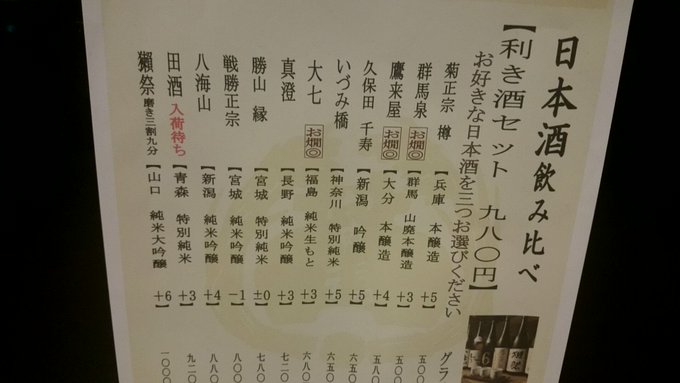 日本酒飲み比べ
【利き酒セット 九八〇円】
お好きな日本酒を三つお選びください
グラ
菊正宗 樽 【兵庫 本醸造 +5】 五〇〇
群馬泉 お燗◎ 【群馬 山廃本醸造 +3】 五〇〇
鷹来屋 お燗◎ 【大分 本醸造 +4】 五八〇
久保田 千寿 【新潟 吟醸 +5】 六五〇
いづみ橋 【神奈川 特別純米 +5】 六五〇
大七 お燗◎ 【福島 純米生もと +3】 六八〇
真澄 【長野 純米吟醸 +3】 七二〇
勝山 縁 【宮城 特別純米 ±0】 七八〇
戦勝正宗 【宮城 純米吟醸 -1】 八〇〇
八海山 【新潟 純米吟醸 +4】 八八〇
田酒 入荷待ち 【青森 特別純米 +3】 九二〇
獺祭 磨き三割九分 【山口 純米大吟醸 +6】 一〇〇〇